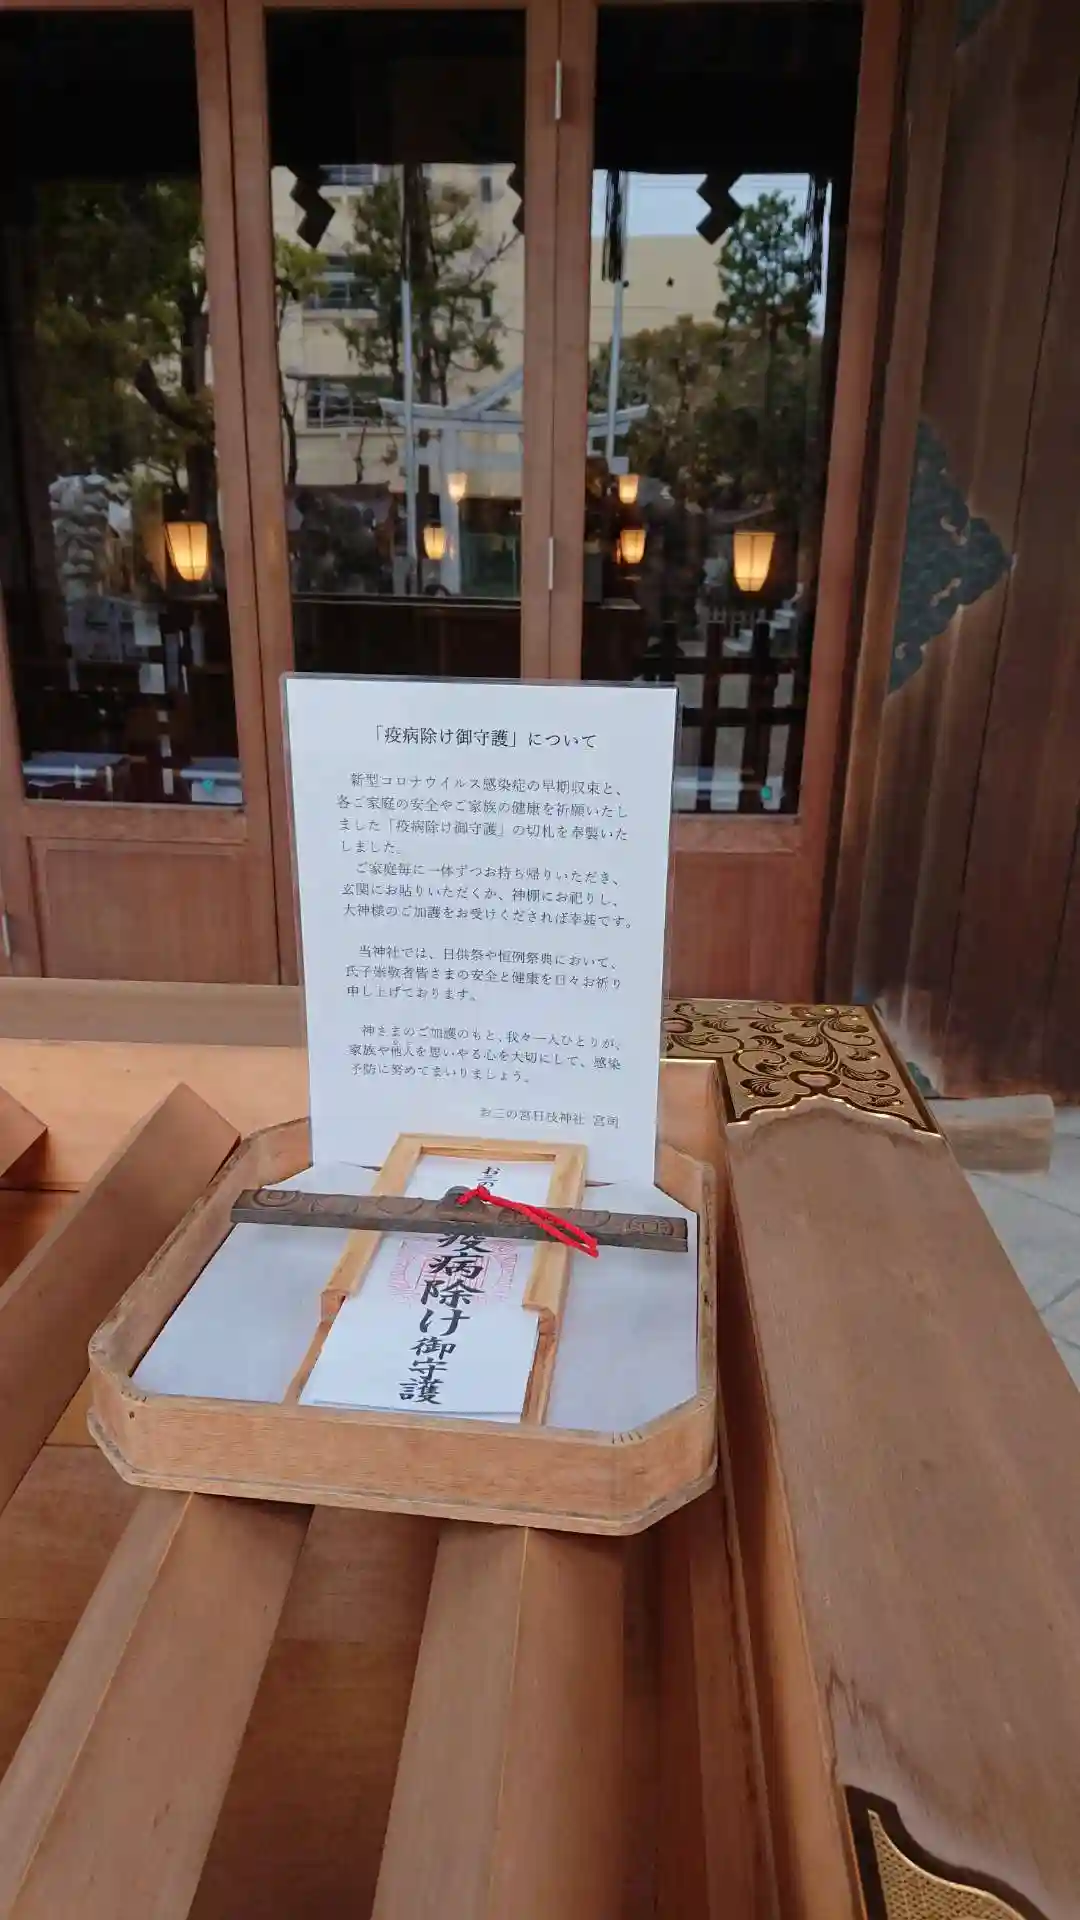 「疫病除け御守護」について
新型コロナウイルス感染症の早期収束と、
各ご家庭の安全やご家族の健康を祈願いたし
ました「疫病除け御守護」の切札を奉製いた
しました。
ご家庭毎に一体ずつお持ち帰りいただき、
玄関にお貼りいただくか、神棚にお祀りし、
大神様のご加護をお受けくだされば幸甚です。
当神社では、日供祭や恒例祭典において、
氏子崇敬者皆さまの安全と健康を日々お祈り
申し上げております。
神さまのご加護のもと、我々一人ひとりが、
家族や他人を思いやる心を大切にして、感染
予防に努めてまいりましょう。
お三の宮日枝神社 宮司
お三の
疫病除け御守護